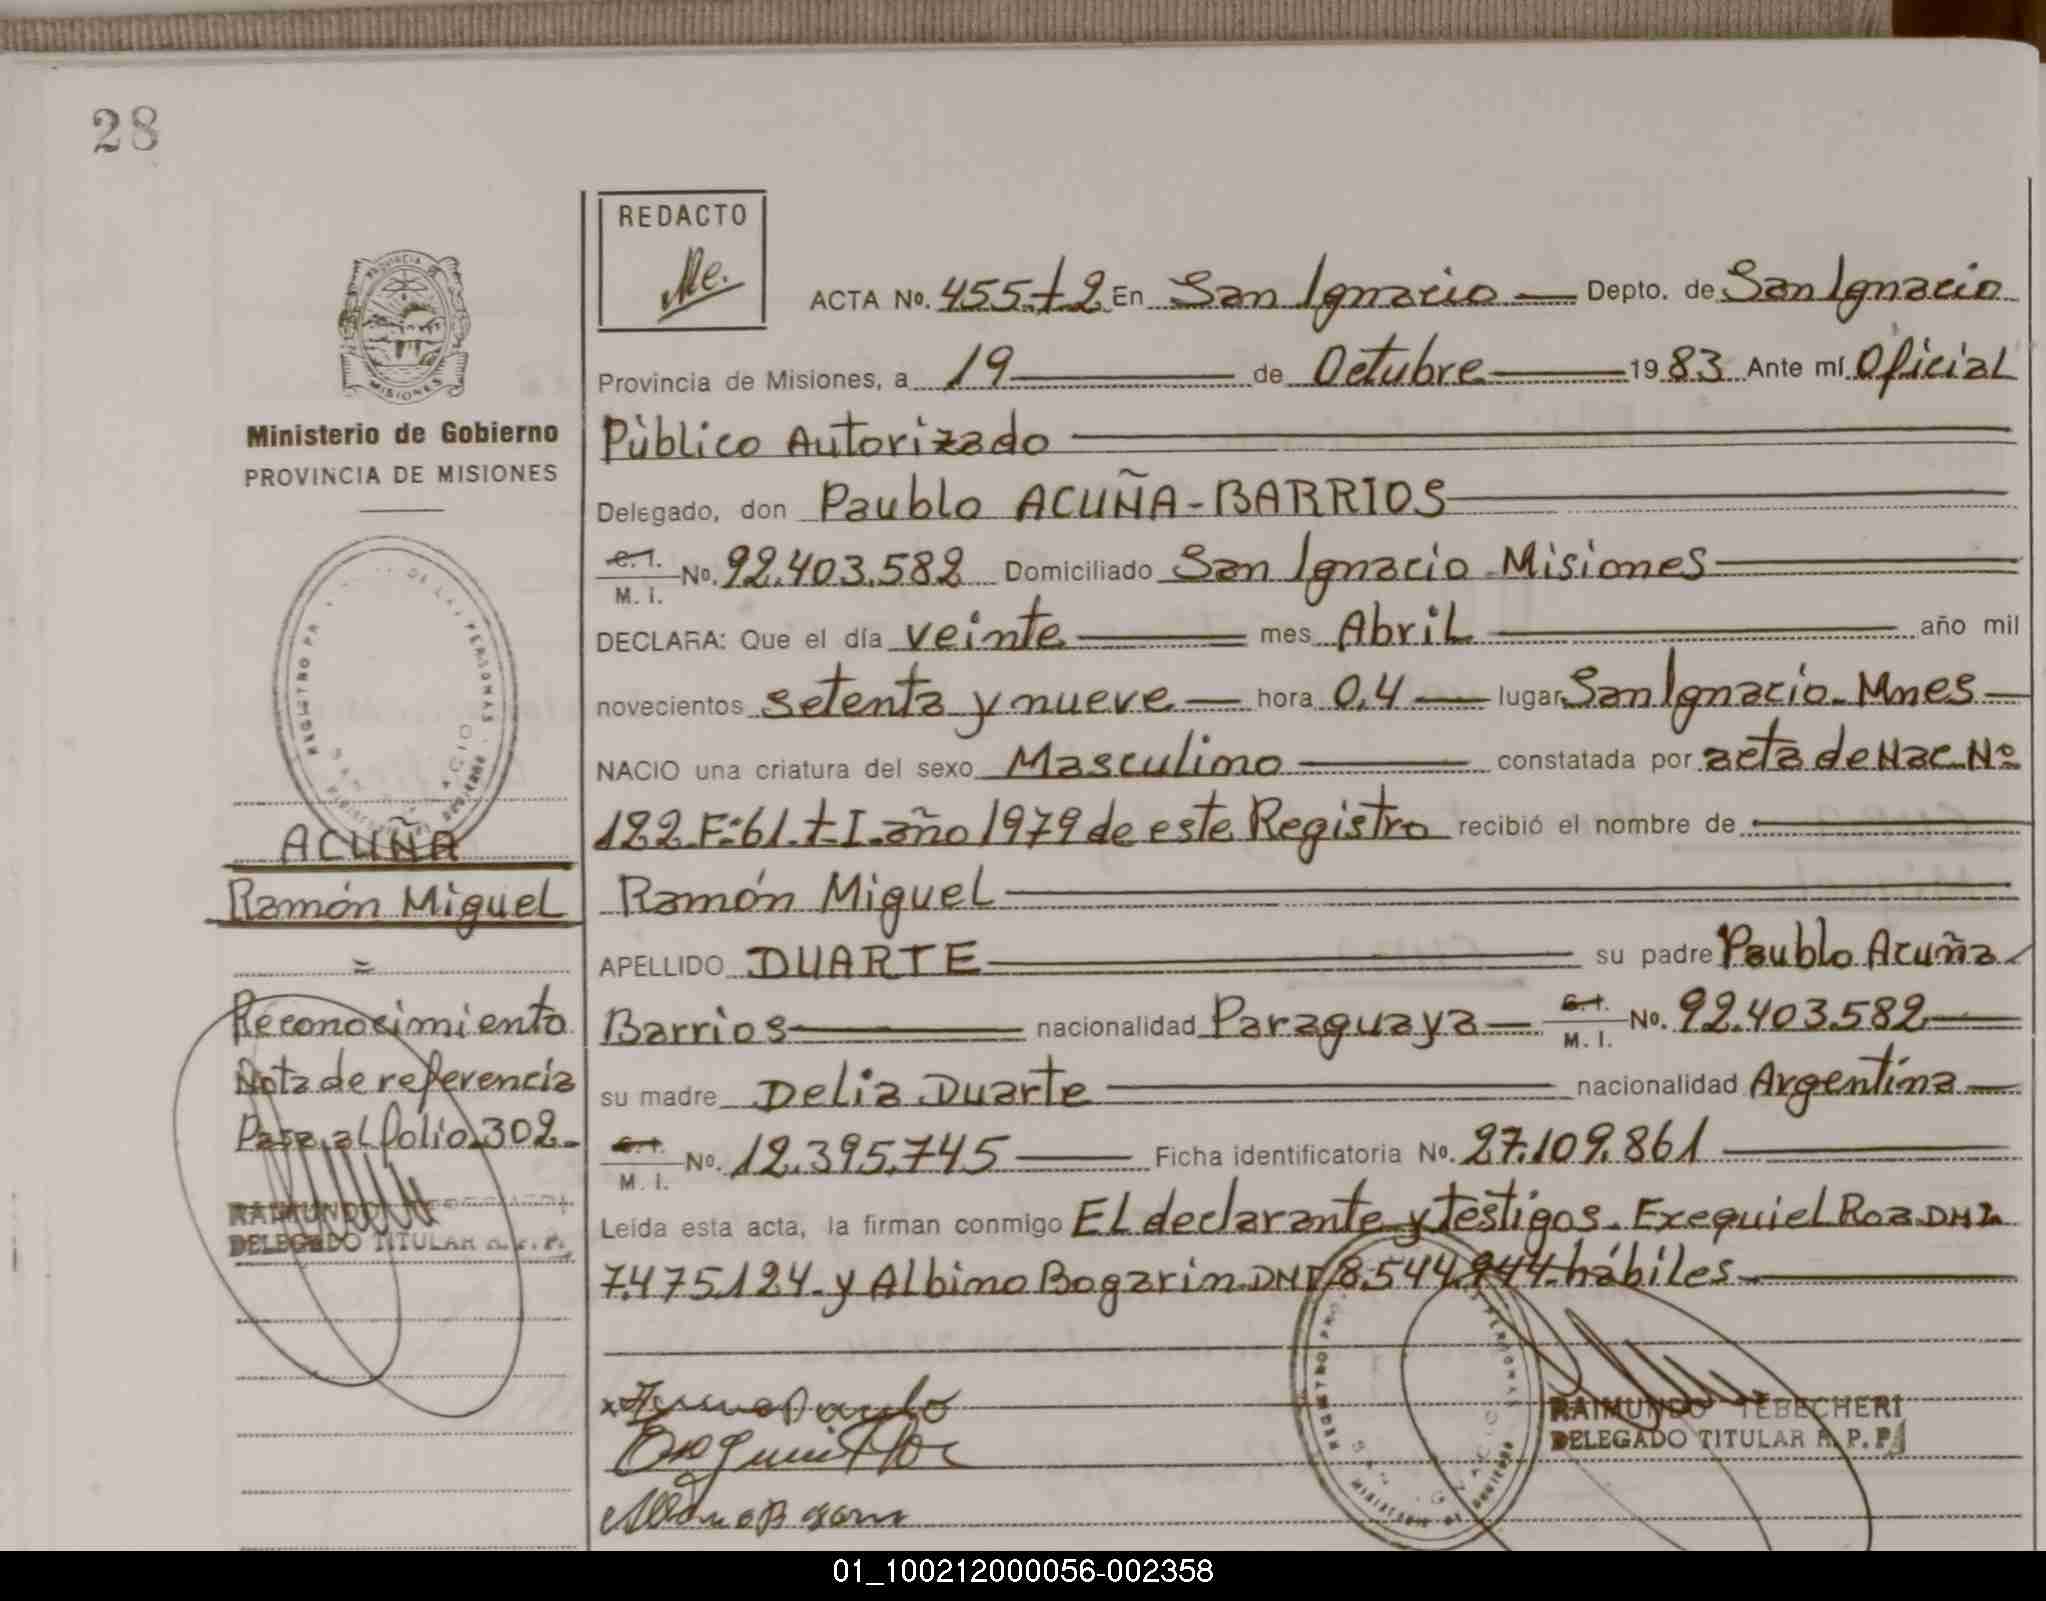 28
REDACTO
Me.
ACTA No. 455.t2 En San Ignacio Depto. de San Ignacio
Provincia de Misiones, a 19 de Octubre 1983 Ante mí Oficial
Público Autorizado
Delegado, don Paublo ACUÑA-BARRIOS
C.I. M. I. No. 92.403.582 Domiciliado San Ignacio Misiones
DECLARA: Que el día veinte mes Abril año mil
novecientos setenta y nueve hora 0,4 lugar San Ignacio. Mnes
NACIO una criatura del sexo Masculino constatada por acta de Nac. Nº
122.Fº61.t.I.año 1979 de este Registro recibió el nombre de
Ramón Miguel
APELLIDO DUARTE su padre Paublo Acuña
Barrios nacionalidad Paraguaya C.I. M. I. No. 92.403.582
su madre Delia Duarte nacionalidad Argentina
C.I. M. I. No. 12.395.745 Ficha identificatoria No. 27.109.861
Leída esta acta, la firman conmigo El declarante y testigos. Exequiel Roa DMI
7.475.124. y Albino Bogarin DMI 8.544.944. hábiles
RAIMUNDO TEBECHERI
DELEGADO TITULAR R. P. P.
PROVINCIA DE
MISIONES
Ministerio de Gobierno
PROVINCIA DE MISIONES
ACUÑA
Ramón Miguel
=
Reconocimiento
Nota de referencia
Pasa al folio 302.
RAIMUNDO
DELEGADO TITULAR R. P. P.
01_100212000056-002358